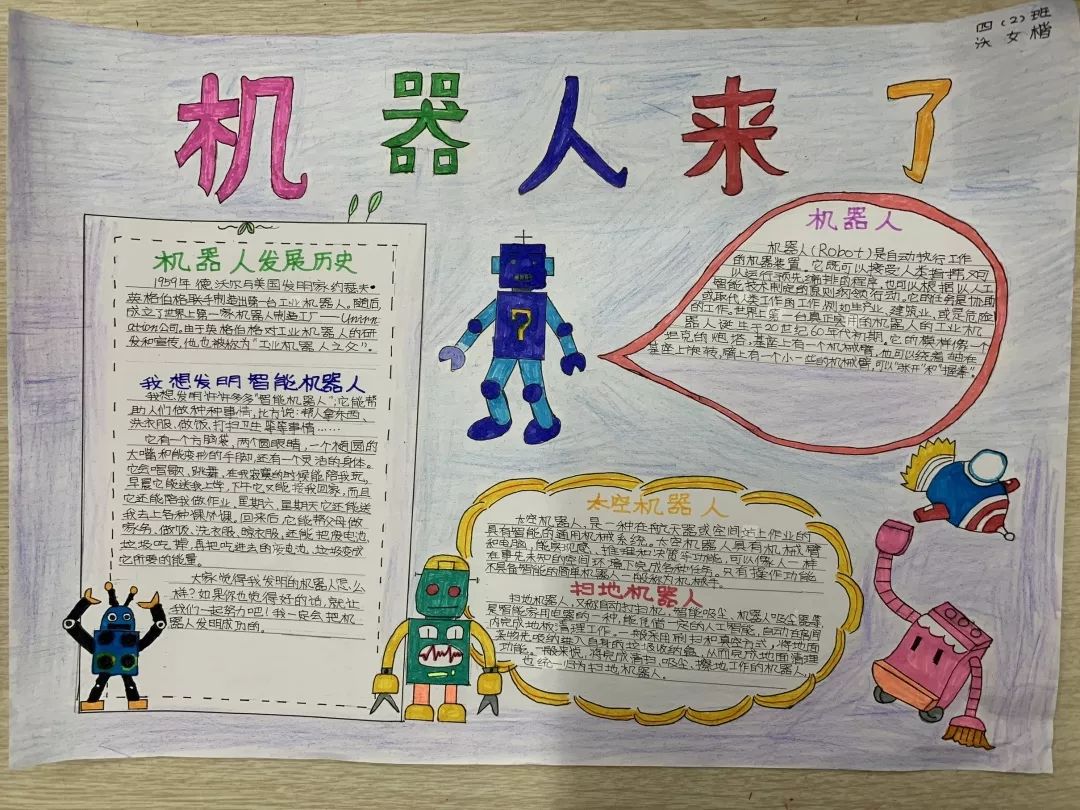 四（2）班
机器人来了
机器人发展历史
1959年德沃尔与美国发明家约瑟夫·
英格伯格联手制造出第一台工业机器人。随后,
成立了世界上第一家机器人制造工厂——Unim
ation公司。由于英格伯格对工业机器人的研
发和宣传,他也被称为"工业机器人之父"。
我想发明智能机器人
我想发明许许多多"智能机器人",它能帮
助人们做种种事情,比方说:帮人拿东西、
洗衣服、做饭、打扫卫生等等事情……
它有一个方脑袋,两个圆眼睛,一个椭圆的
大嘴和能变形的手脚,还有一个灵活的身体。
它会唱歌、跳舞,在我寂寞的时候能陪我玩。
早晨它能送我上学,下午它又能接我回家,而且
它还能陪我做作业,星期六、星期天它还能送
我去上各种课外课。回来后,它能帮父母做
家务、做饭、洗衣服、晾衣服,还能把废电池、
垃圾吃掉,再把吃进去的废电池、垃圾变成
它所要的能量。
大家觉得我发明的机器人怎么
样?如果你也觉得好的话,就让
我们一起努力吧!我一定会把机
器人发明成功的。
机器人
机器人(Robot)是自动执行工作
的机器装置。它既可以接受人类指挥,又可
以运行预先编排的程序,也可以根据以人工
智能技术制定的原则纲领行动。它的任务是协助
或取代人类工作的工作,例如生产业、建筑业,或是危险
的工作。世界上第一台真正实用的机器人的工业机
器人诞生于20世纪60年代初期,它的模样像一个
坦克的炮塔,基座上有一个机械臂,他可以绕着轴在
基座上旋转,臂上有一个小一些的机械臂,可以"张开"和"握拳"。
太空机器人
太空机器人,是一种在航天器或空间站上作业的
具有智能的通用机械系统。太空机器人具有机械臂
和电脑,能实现感、推理和决策等功能,可以像人一样
在事先未知的空间环境下完成各种任务。只有操作功能
不具备智能的简单机器人一般称为机械手。
扫地机器人
扫地机器人,又称自动打扫机、智能吸尘、机器人吸尘器等,
是智能家用电器的一种,能凭借一定的人工智能,自动在房间
内完成地板清理工作。一般采用刷扫和真空方式,将地面
杂物先吸纳进入自身的垃圾收纳盒,从而完成地面清理
功能。一般来说,将完成清扫、吸尘、擦地工作的机器人,
也统一归为扫地机器人。